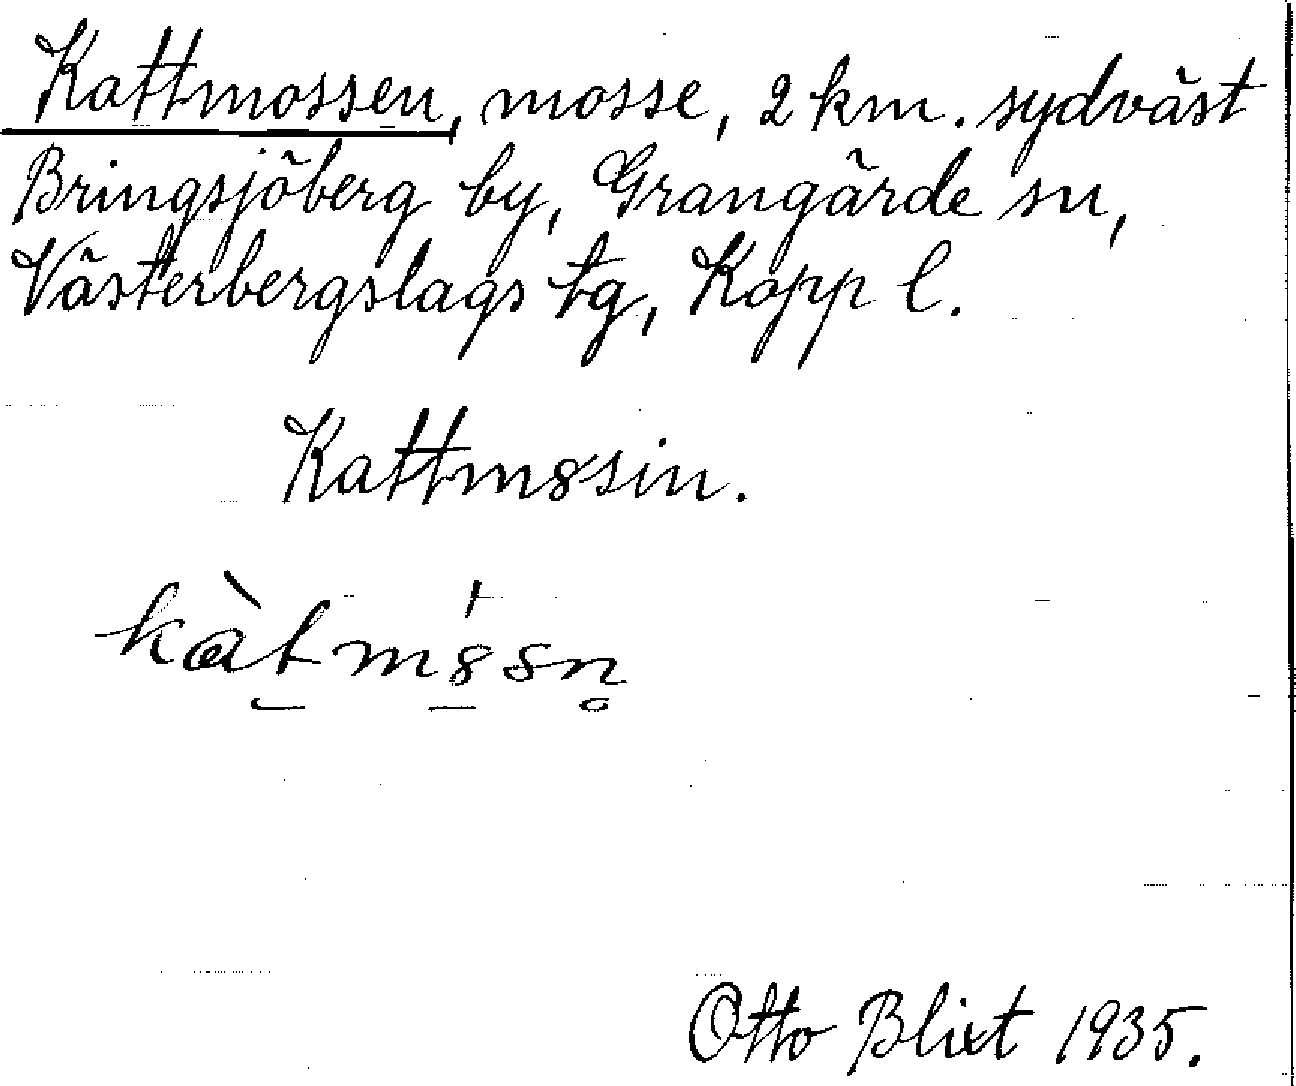 Kattmossen, mosse, 2 km. sydväst
Bringsjöberg by, Grangärde sn,
Västerbergslags tg, Kopp l.
Kattm8sin.
kàt̠m8̠́sn̥
Otto Blixt 1935.